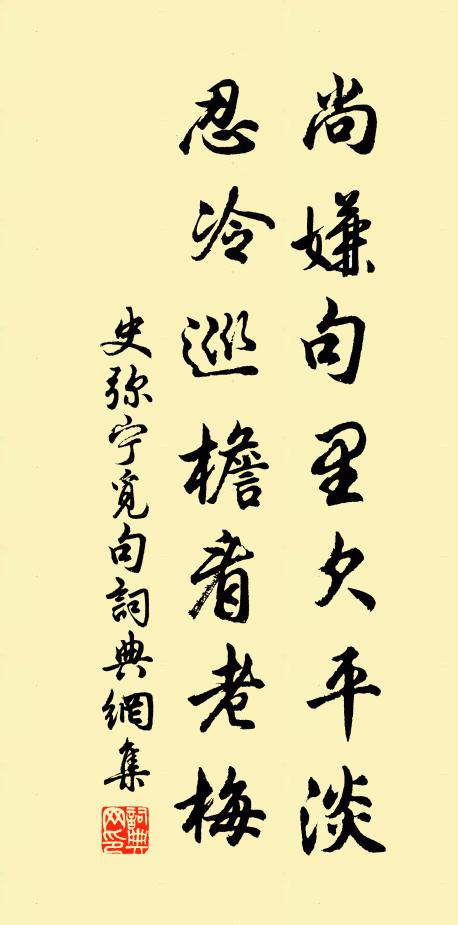 尚嫌句里欠平淡
忍冷巡檐看老梅
史弥宁觅句詞典網集
詞典网印